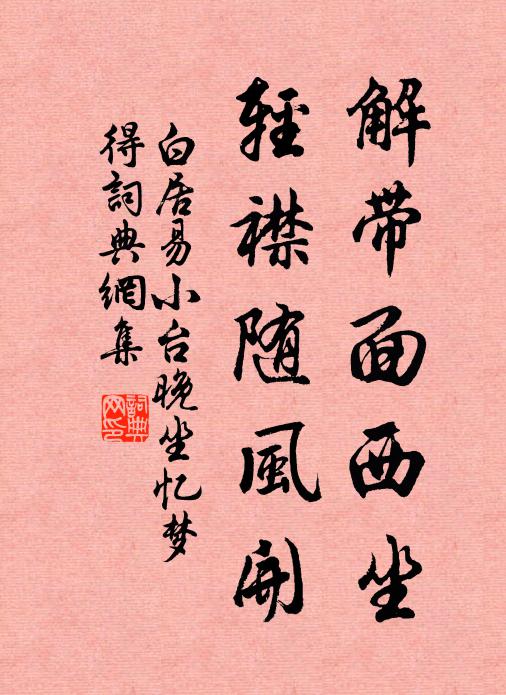 解带面西坐
輕襟随風開
白居易小台晚坐忆梦
得詞典網集
詞典
网印